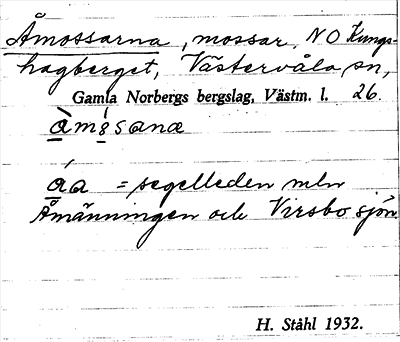 Åmossarna, mossar, NO Kungs-
hagberget, Västervåla sn,
Gamla Norbergs bergslag, Västm. l. 26.
àms̩sanæ
åa = segelleden mln
Åmänningen och Virsbo sjön.
H. Ståhl 1932.